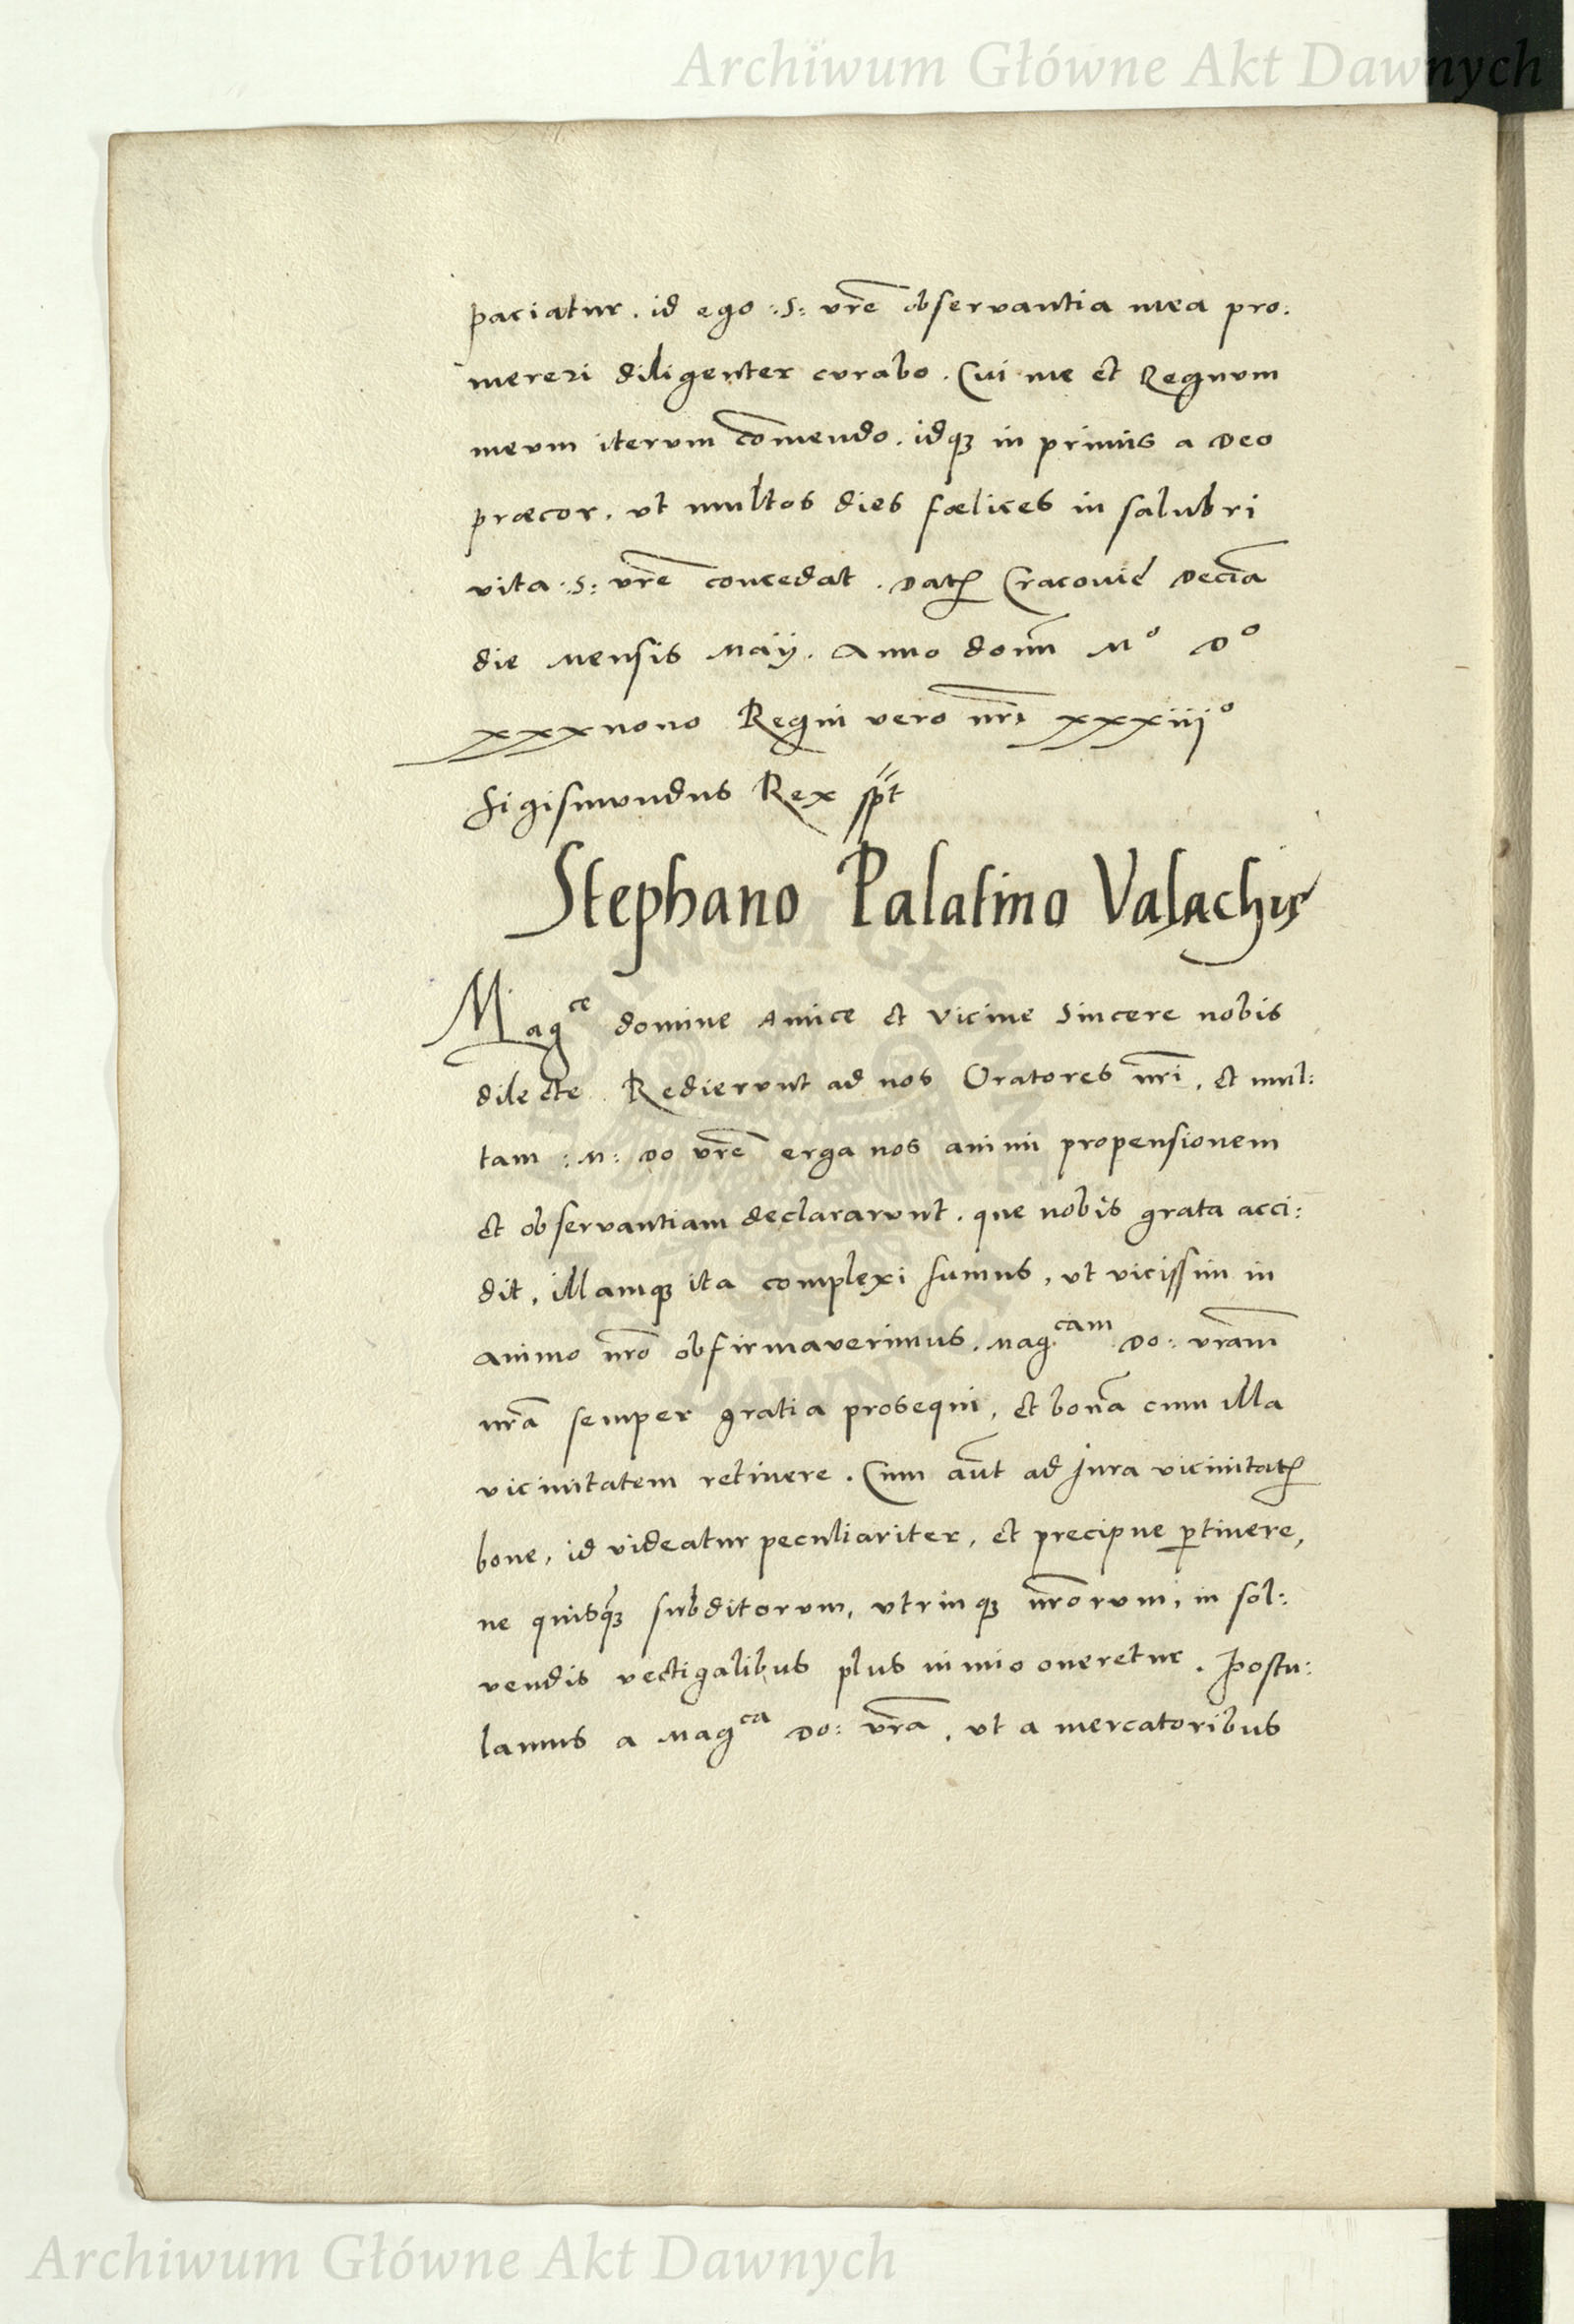 Archiwum Główne Akt Dawnych
paciatur. id ego :S: vr̃e observantia mea pro:
mereri diligenter curabo. Cui me et Regnum
meum iterum com̃endo. idqꝫ in primis a Deo
præcor. ut multos dies fœlices in salubri
vita :S: vr̃e concedat. Datꝭ Cracovię Decĩa
die Mensis Maij. Anno domĩ Mº Dº
xxxnono Regni vero nr̃i xxxiijº
Sigismundus Rex sp̃t
Stephano Palatino Valachię
Magce domine Amice et Vicine Sincere nobis
dilecte Redierunt ad nos Oratores nr̃i, et mul:
tam :M: Do vr̃e erga nos animi propensionem
et observantiam declararunt. que nobis grata acci:
dit, illamqꝫ ita complexi sumus, ut vicissim in
animo nr̃o obfirmaverimus. Magcam Do: vr̃am
nr̃a semper gratia prosequi, et bonã cum illa
vicinitatem retinere. Cum aũt ad Jura vicinitatꝭ
bone, id videatur peculiariter, et precipue ꝑtinere,
ne quisqꝫ subditorum, utrinqꝫ nr̃orum, in sol:
vendis vectigalibus plus nimio oneretur. Postu:
lamus a Magca Do: vr̃a, ut a mercatoribus
Archiwum Główne Akt Dawnych